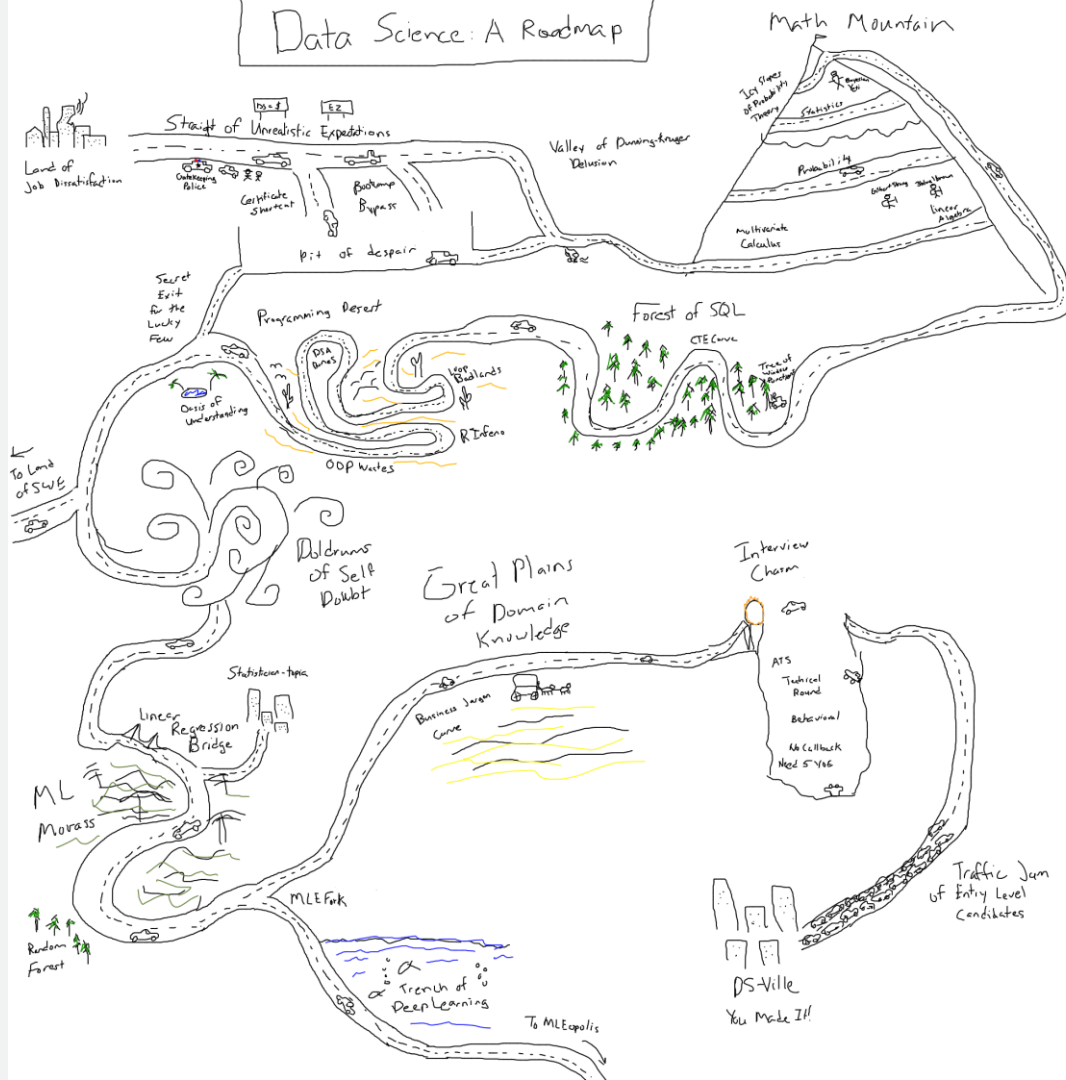 Data Science: A Roadmap
Math Mountain
Icy Slopes
of Probability
Theory
Bayesian
Yeti
Statistics
Probability
Gilbert Strang
Linear
Algebra
Multivariate
Calculus
DS = $
EZ
Straight of Unrealistic Expectations
Land of
Job Dissatisfaction
Gatekeeping
Police
Certificate
Shortcut
Bootcamp
Bypass
Valley of Dunning-Kruger
Delusion
pit of despair
Secret
Exit
for the
Lucky
Few
Programming Desert
DSA
Dunes
Loop
Badlands
R Infeno
OOP Wastes
Oasis of
Understanding
Forest of SQL
CTE Curve
Tree of
Window
Functions
To Land
of SWE
Doldrums
of Self
Doubt
Great Plains
of Domain
Knowledge
Interview
Chasm
ATS
Techical
Round
Behavioral
No Callback
Need 5 YOE
Statistician-topia
Linear
Regression
Bridge
Business Jargon
Curve
ML
Morass
Random
Forest
MLE Fork
Trench of
Deep Learning
To MLEopolis
Traffic Jam
of Entry Level
Candidates
DS-Ville
You Made It!